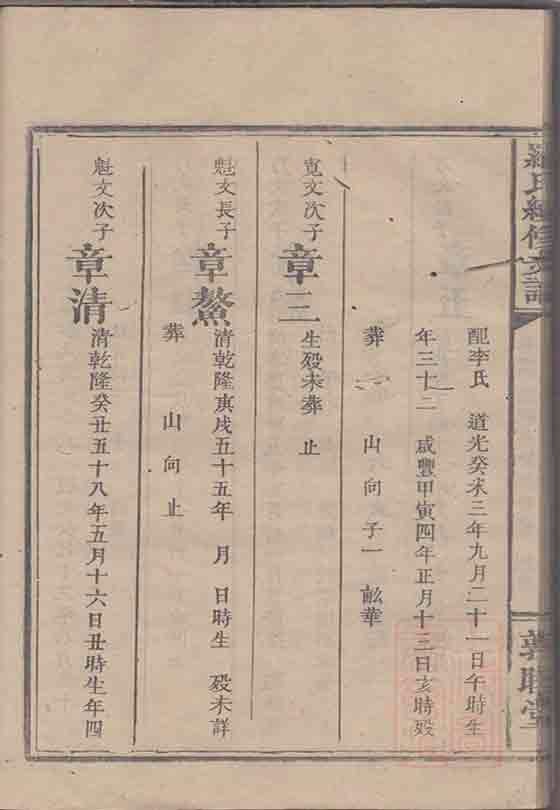 羅氏續修支譜
配李氏 道光癸未三年九月二十一日午時生
年三十二 咸豐甲寅四年正月十三日亥時殁
葬 山 向 子一 畝華
寬文次子 章三 生殁未葬 止
魁文長子 章鰲 清乾隆庚戌五十五年 月 日時生 殁未詳
葬 山 向 止
魁文次子 章清 清乾隆癸丑五十八年五月十六日丑時生年四